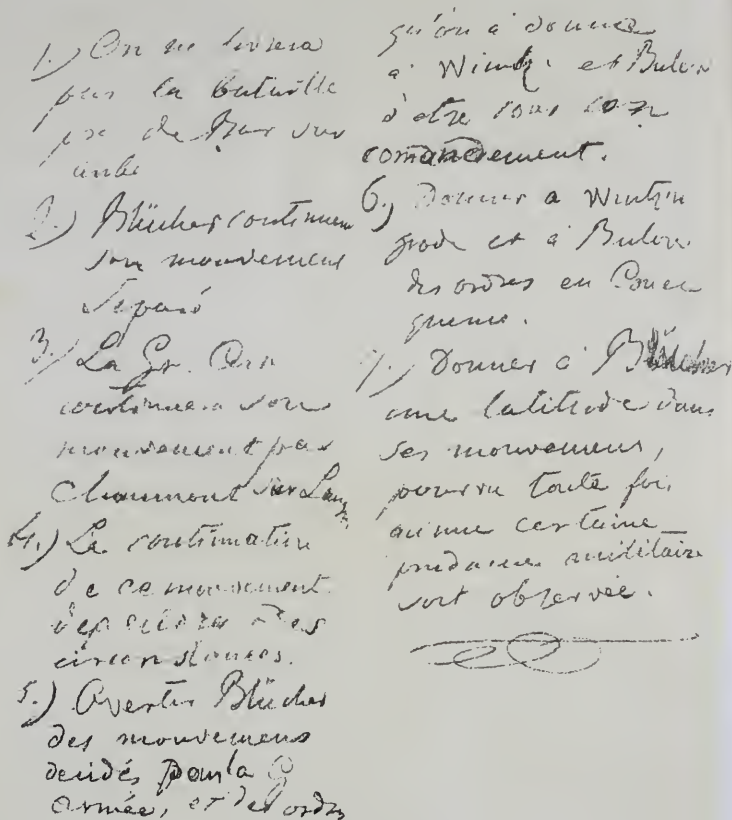 1.) On ne livrera
pas la bataille
pre de Bar sur
aube
2.) Blücher continuera
son mouvement
séparé
3.) La Gr. Arm
continuera son
mouvement par
Chaumont sur Lang.
4.) La continuation
de ce mouvement
dependra des
circonstances.
5.) Avertir Blücher
des mouvemens
decidés pour la G
armée, et des ordres
qu'on a donnés
a Wintz. et Bulow
d'etre sous son
comandement.
6.) Donner a Wintzin
grode et a Bulow
des ordres en Conse
quence.
7.) Donner a Blücher
une latitude dans
ses mouvemens,
pourvu toute fois
qu'une certaine
prudence militaire
soit observée.